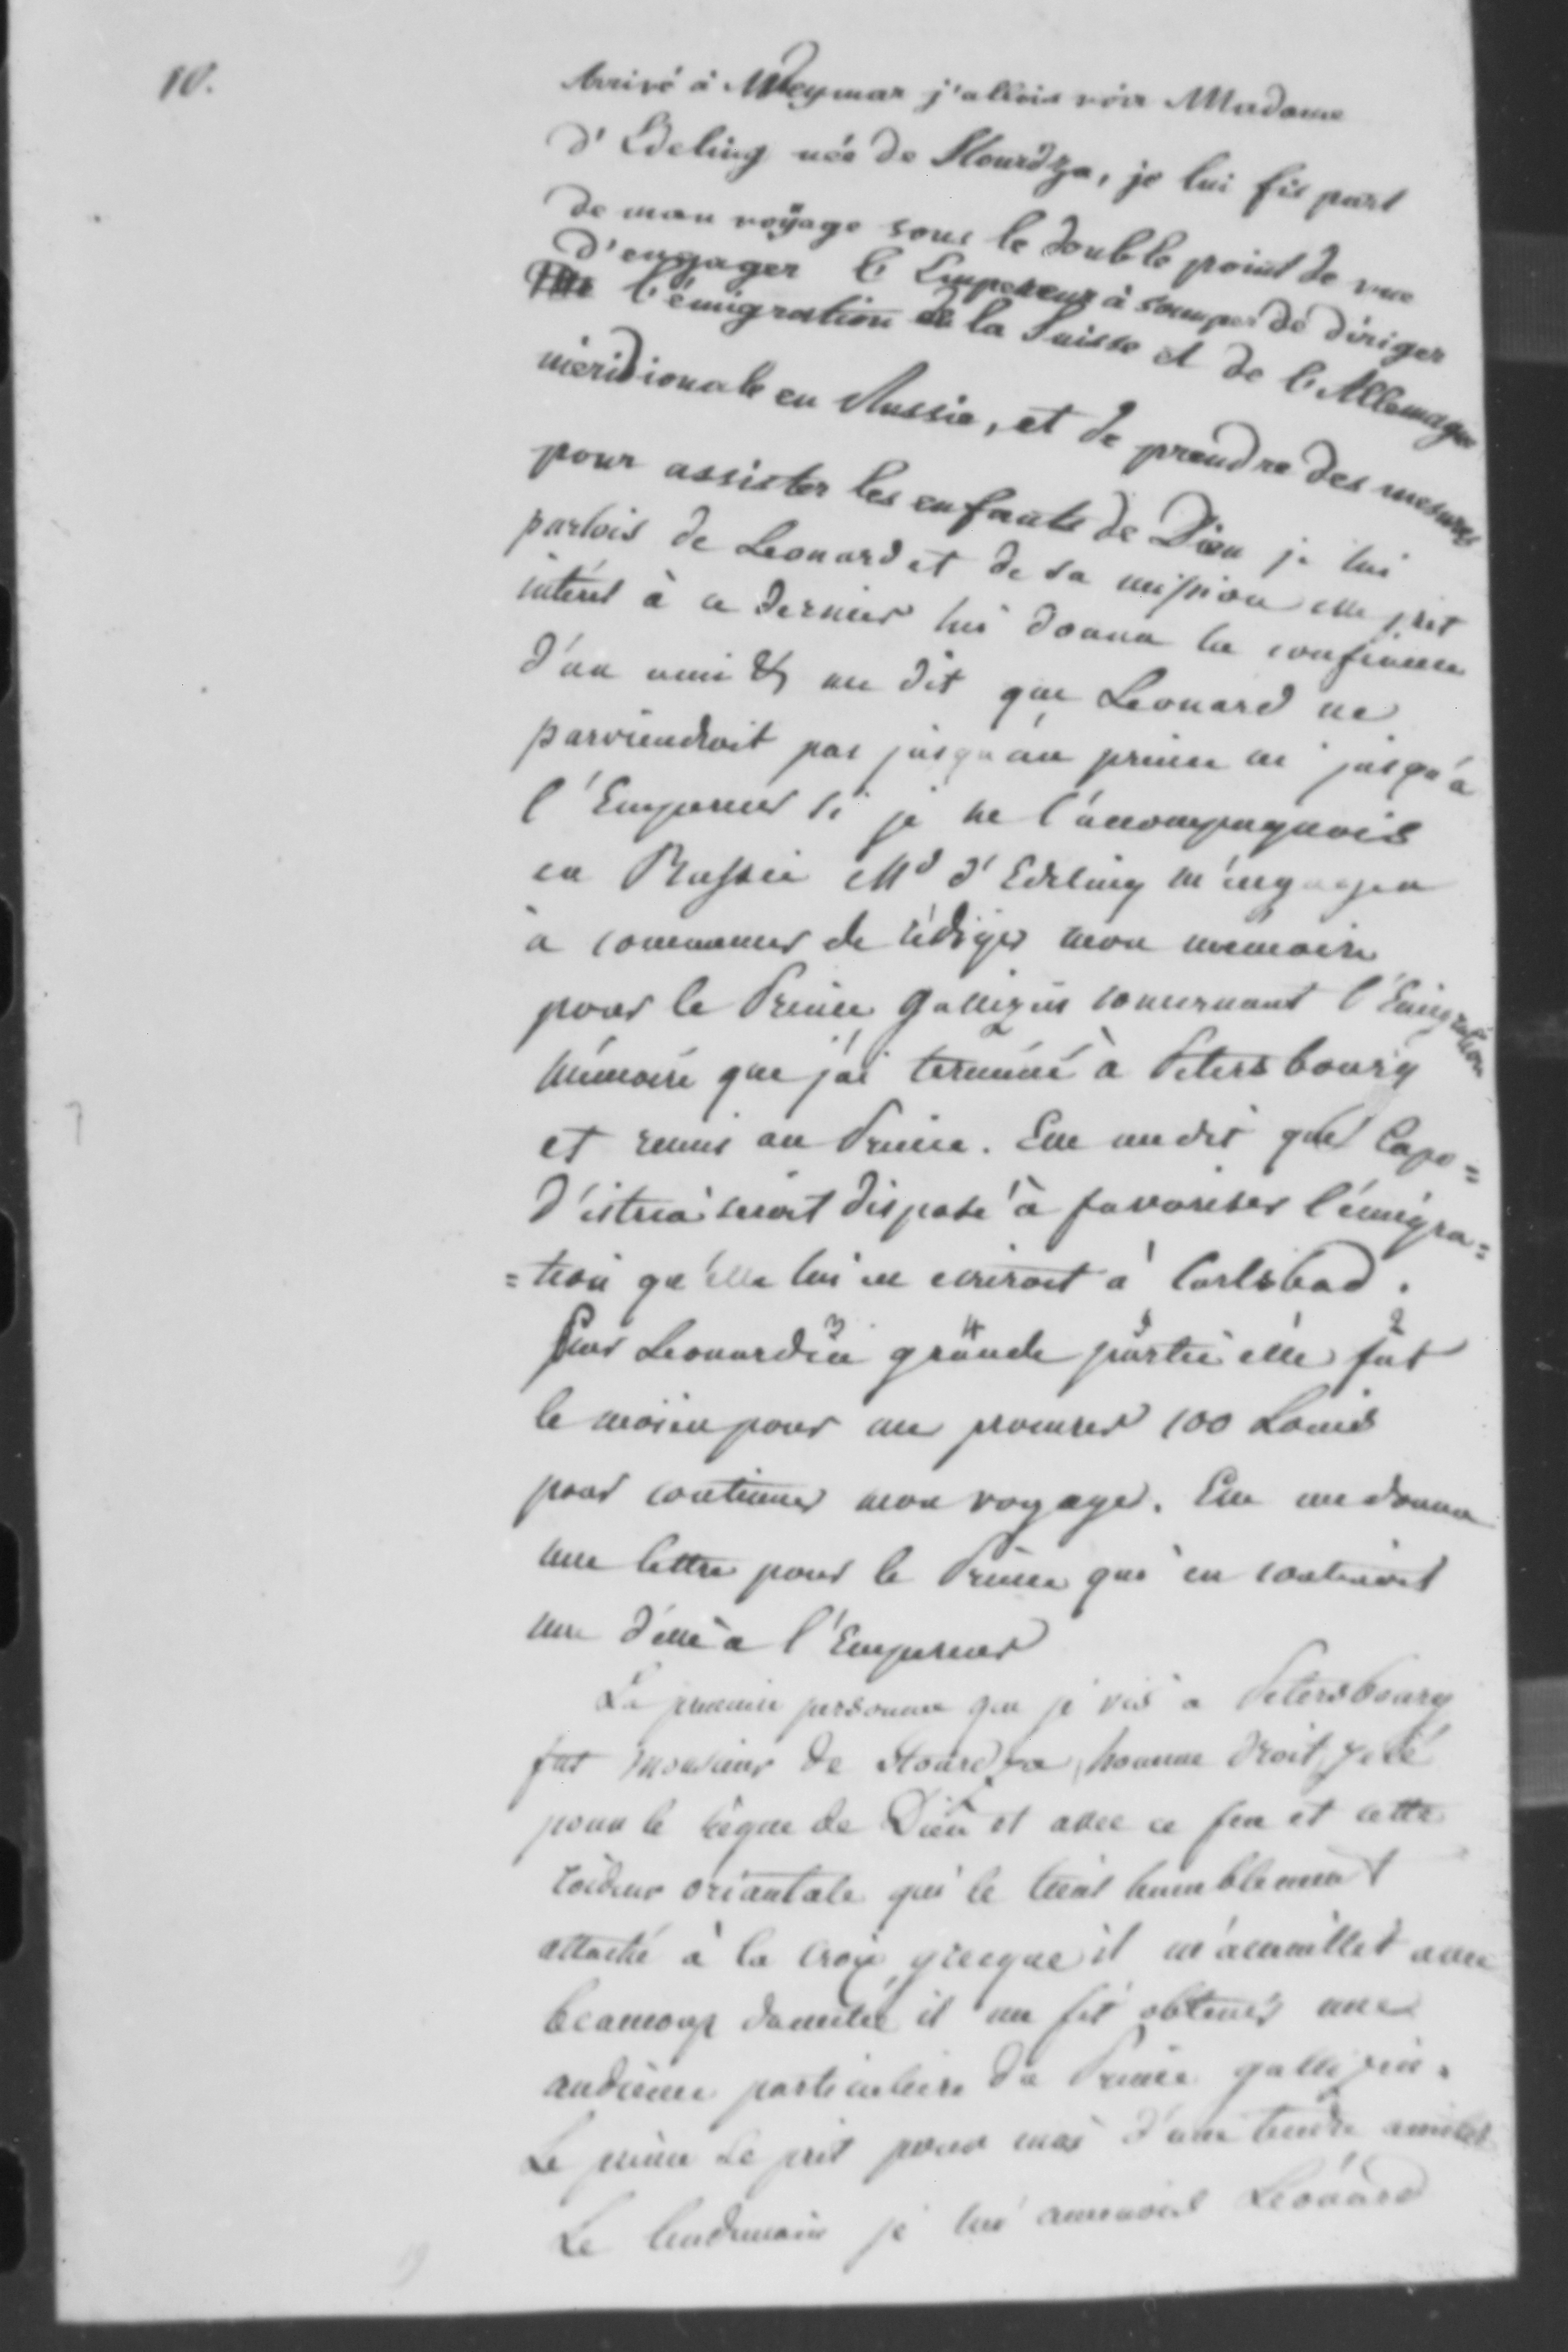 10.
Arrivé à Weymar j'allois voir Madame
d'Edeling née de Stourdza, je lui fis part
de mon voyage sous le double point de vue
d'engager l'Empereur à s'occuper de diriger
l'émigration de la Suisse et de l'Allemagne
méridionale en Russie, et de prendre des mesures
pour assister les enfants de Dieu je lui
parlois de Leonard et de sa mission elle prit
intéret à ce dernier lui donna la confiance
d'un ami & me dit que Leonard ne
parviendroit pas jusqu'au prince ni jusqu'à
l'Empereur si je ne l'accompagnois
en Russie Md d'Edeling m'engagea
à commencer de rédiger mon mémoire
pour le Prince Gallizin concernant l'Emigration
mémoire que j'ai terminé à Petersbourg
et remis au Prince. Elle me dit que Capo=
d'istria seroit disposé à favoriser l'émigra=
=tion qu'elle lui en écriroit à Carlsbad.
Pour Leonard en grande partie elle fut
le moien pour me procurer 100 Louis
pour continuer mon voyage. Elle me donna
une lettre pour le Prince qui en contenoit
une d'elle à l'Empereur
La premiere personne que je vis a Petersbourg
fut Monsieur de Stourdza, homme droit, zelé
pour le règne de Dieu et avec ce feu et cette
roideur oriantale qui le tient humblement
attaché à la croix grecque il m'accueillit avec
beaucoup damitié il me fit obtenir une
audience particuliere du Prince gallizin.
Le prince se prit pour moi d'une tendre amitié
Le lendemain je lui amenois Léonard